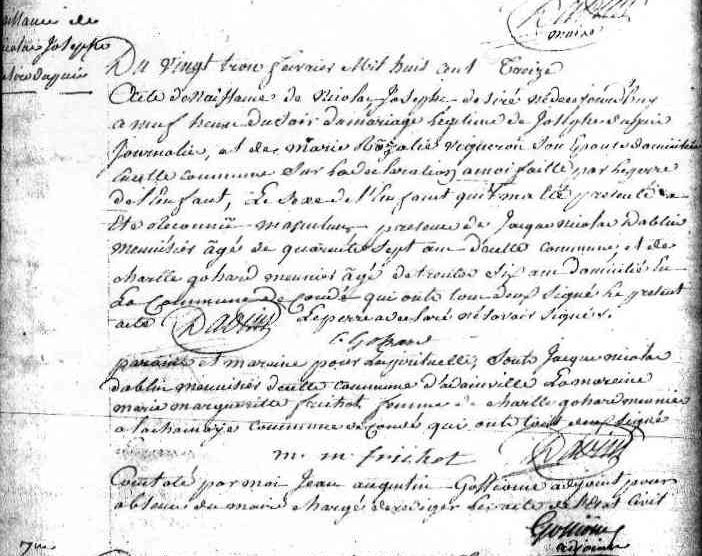 maire
Naissance de
Nicolas Joseph
Desiré Dupuis
Du vingt trois fevrier Mil huit cent Treize
Acte de Naissance de Nicolas Joseph desiré né de ce jourdhuy
a neuf heure du soir du mariage legitime de Joseph dupuis
Journalie, et de Marie Rosalie vigueron son Epouse domiciliée
en cette commune sur la declaration a moi faitte par le perre
de l'enfant, Le sexe de l'Enfant qui m'a été presenté a
Eté reconnue masculin presence de Jacque Nicolas Dablin
Meunisier âgé de quarente sept ans d'cette commune et de
charlle gohard meunier âgé de trente six ans domicilié En
La Commune de Condé qui onte tou deux signé Le present
acte Dablin Le perre a declaré ne savoir signer.
C Gohard
paraine et maraine pour La spirituelle, sont Jacque nicolas
dablin meunisier d'cette commune d'adainville La mareine
marie margueritte frichot femme de charlle gohard meunier
a commune de Condé qui onte tout deux signé
m. m. frichot Dablin
Constaté par moi Jean augustin Gossiome adjoint pour
absence du maire chargé de rediger les acte de l'état Civil
Gossiome
adjoint